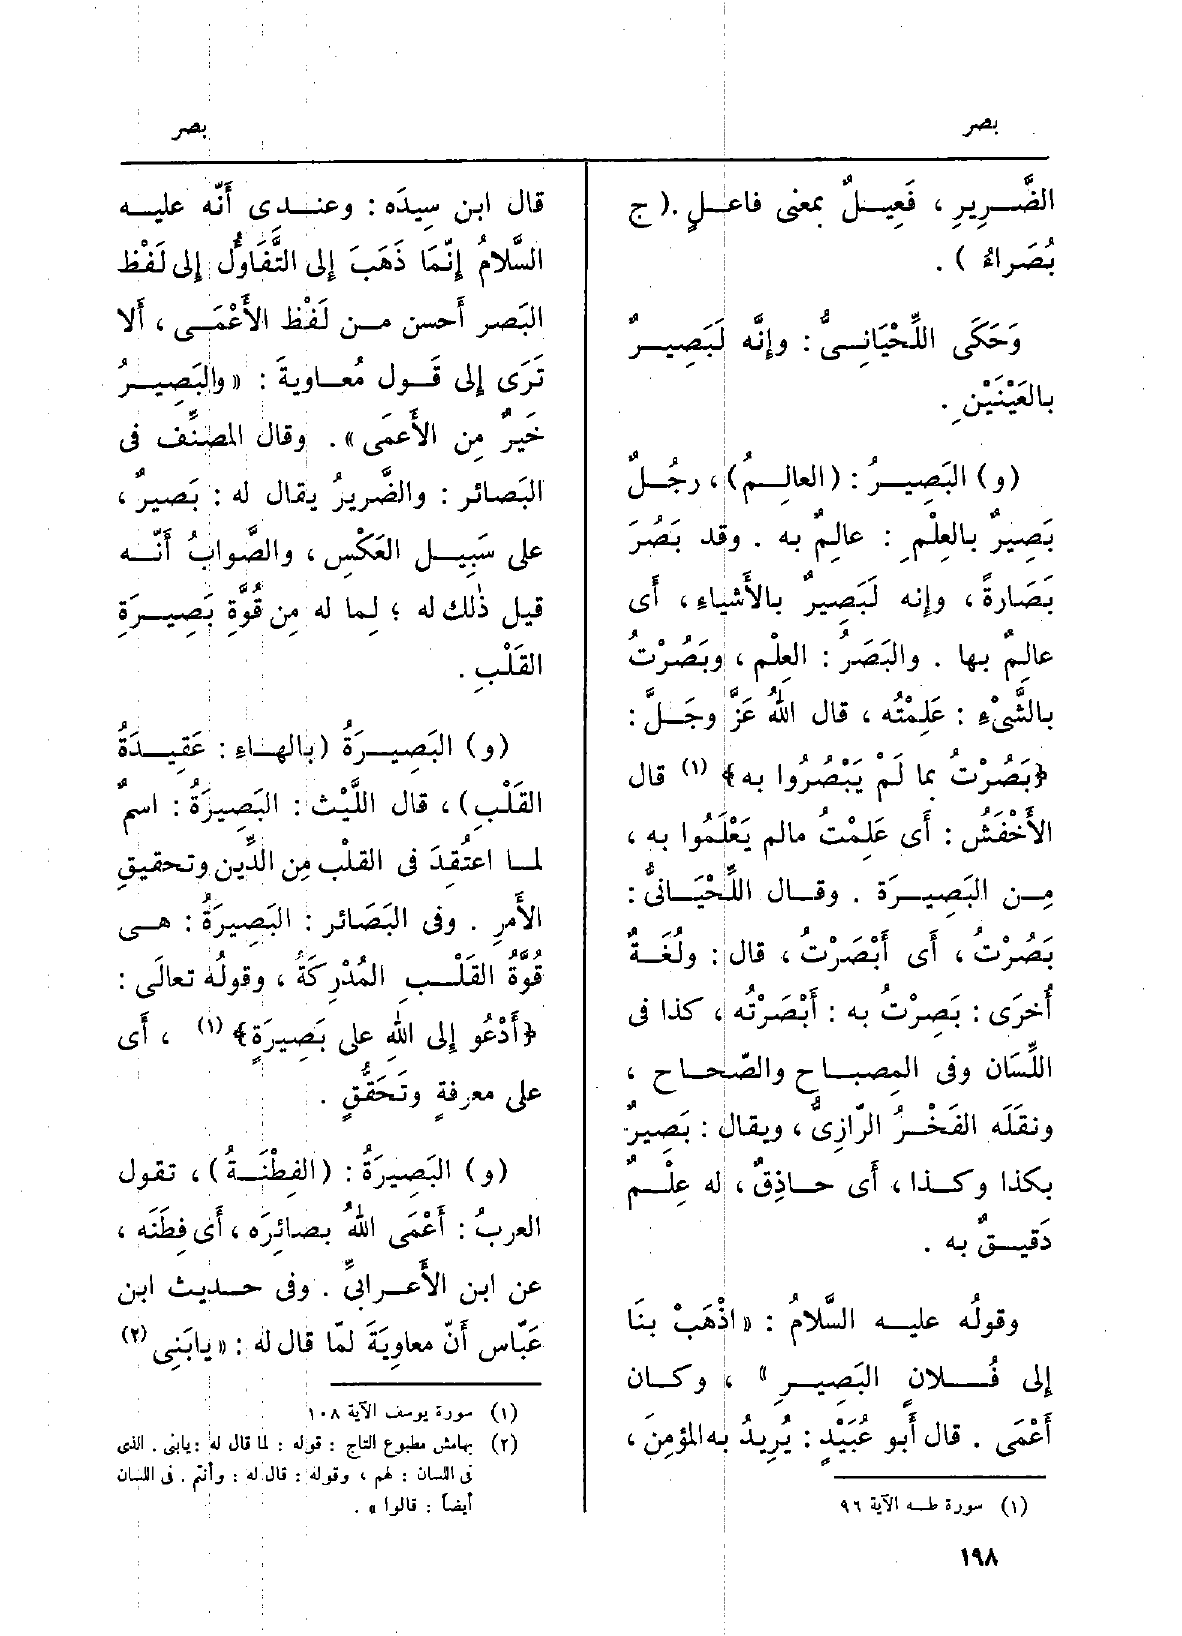 بصر
بصر
الضَّرِيرِ ، فَعِيلٌ بمعنى فاعلٍ . ( ج
بُصَراءُ ) .
وَحَكَى اللِّحْيَانِىُّ : وإنَّه لَبَصِيرٌ
بالعَيْنَيْنِ .
( و ) البَصِيرُ : ( العالِمُ ) ، رجُلٌ
بَصِيرٌ بالعِلْمِ : عالِمٌ به . وقد بَصُرَ
بَصَارةً ، وإنه لَبَصِيرٌ بالأَشياءِ ، أَى
عالِمٌ بها . والبَصَرُ : العِلْم ، وبَصُرْتُ
بالشَّىْءِ : عَلِمْتُه ، قال اللهُ عَزَّ وجَلَّ :
﴿بَصُرْتُ بما لَمْ يَبْصُرُوا به﴾ (١) قال
الأَخْفَشُ : أَى عَلِمْتُ مالم يَعْلَمُوا به ،
مِن البَصِيرَة . وقال اللِّحْيَانىُّ :
بَصُرْتُ ، أَى أَبْصَرْتُ ، قال : ولُغَةٌ
أُخرَى : بَصِرْتُ به : أَبْصَرْتُه ، كذا فى
اللِّسَان وفى المِصباح والصّحاح ،
ونقَلَه الفَخْرُ الرّازِىُّ ، ويقال : بَصِيرٌ
بكذا وكذا ، أَى حاذِقٌ ، له عِلْمٌ
دَقيقٌ به .
وقولُه عليه السَّلامُ : « اذْهَبْ بنَا
إلى فُلانٍ البَصِيرِ » ، وكان
أَعْمَى . قال أَبو عُبَيْدٍ : يُرِيدُ به المؤمنَ ،
(١) سورة طه الآية ٩٦
قال ابن سِيدَه : وعندِى أَنَّه عليه
السَّلامُ إنّمَا ذَهَبَ إلى التَّفَاوُّلِ إلى لَفْظ
البَصر أَحسن من لَفْظ الأَعْمَى ، أَلا
تَرَى إلى قَول مُعاويةَ : « والبَصِيرُ
خَيرٌ مِن الأَعمَى » . وقال المصنِّف فى
البَصائر : والضَّريرُ يقال له : بَصيرٌ ،
على سَبِيل العَكْسِ ، والصَّوابُ أَنَّه
قيل ذٰلك له ؛ لِما له مِن قُوَّةِ بَصِيرَةِ
القَلْبِ .
( و ) البَصِيرَةُ ( بالهاءِ : عَقِيدَةُ
القَلْبِ ) ، قال اللَّيْث : البَصِيرَةُ : اسمٌ
لما اعتُقِدَ فى القلْب مِن الدِّين وتحقيقِ
الأَمرِ . وفى البَصَائر : البَصِيرَةُ : هى
قُوَّةُ القَلْبِ المُدْرِكَةُ ، وقولُه تعالَى :
﴿أَدْعُو إلى اللهِ على بَصِيرَةٍ﴾ (١) ، أَى
على معرفةٍ وتَحَقُّقٍ .
( و ) البَصِيرَةُ : ( الفِطْنَةُ ) ، تقول
العربُ : أَعْمَى اللهُ بصائرَه ، أَى فِطَنَه ،
عن ابن الأَعرابىِّ . وفى حديث ابن
عَبّاس أَنّ معاوِيَةَ لمّا قال له : « يابَنِى (٢)
(١) سورة يوسف الآية ١٠٨
(٢) بهامش مطبوع التاج : قوله : لما قال له : يابنى . الذى
فى اللسان : لهم ، وقوله : قال له : وأنتم . فى اللسان
أيضاً : قالوا » .
١٩٨